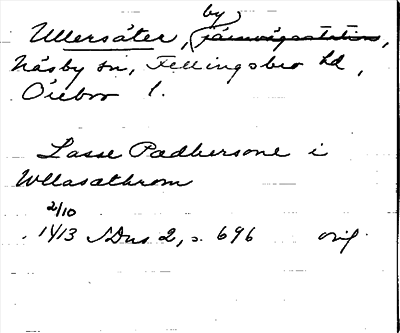 by
Ullersäter, järnvägsstation,
Näsby sn, Fellingsbro hd,
Örebro l.
Lasse Padhersone i
Wllasæthrom
2/10
1413 SDns 2, s. 696 orig.